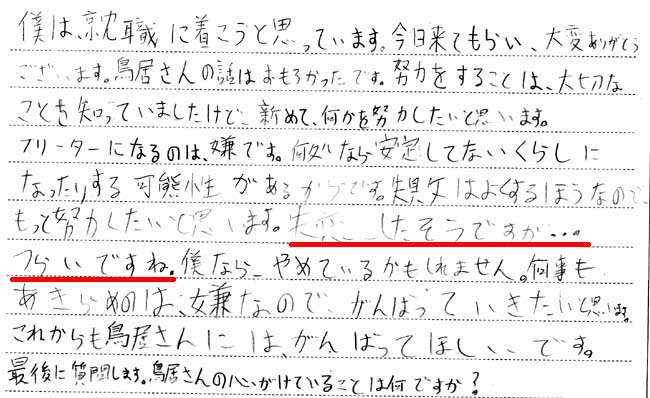 僕は、就職に着こうと思っています。今日来てもらい、大変ありがとう
ございます。鳥居さんの話はおもろかったです。努力をすることは、大切な
ことを知っていましたけど、新めて、何かを努力したいと思います。
フリーターになるのは、嫌です。何処なら安定してないくらしに
なったりする可能性があるからです。失敗はよくするほうなので、
もっと努力したいと思います。失恋したそうですが…。
つらいですね。僕なら、やめているかもしれません。何事も
あきらめのは、嫌なので、がんばっていきたいと思います。
これからも鳥居さんには、がんばってほしいです。
最後に質問します。鳥居さんの心がけていることは何ですか?